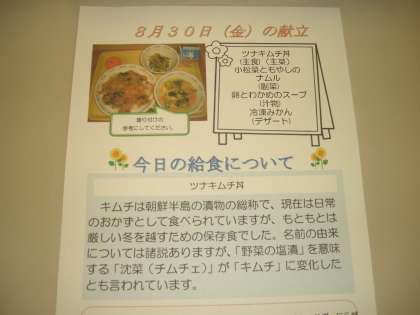 8月30日（金）の献立
ツナキムチ丼
（主食）（主菜）
小松菜ともやしの
ナムル
（副菜）
卵とわかめのスープ
（汁物）
冷凍みかん
（デザート）
盛り付けの
参考にしてください。
今日の給食について
ツナキムチ丼
キムチは朝鮮半島の漬物の総称で、現在は日常
のおかずとして食べられていますが、もともとは
厳しい冬を越すための保存食でした。名前の由来
については諸説ありますが、「野菜の塩漬」を意味
する「沈菜（チムチェ）」が「キムチ」に変化した
とも言われています。